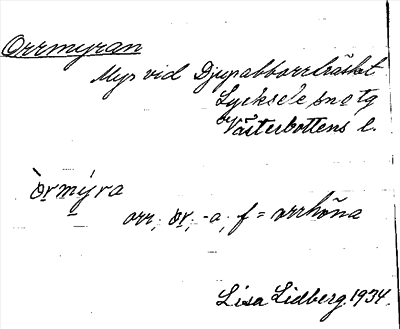 Orrmyran
Myr vid Djupabborrträsket
Lycksele sn o tg
Västerbottens l.
òrmýra
orr, òr, -a, f = orrhöna
Lisa Lidberg 1934.